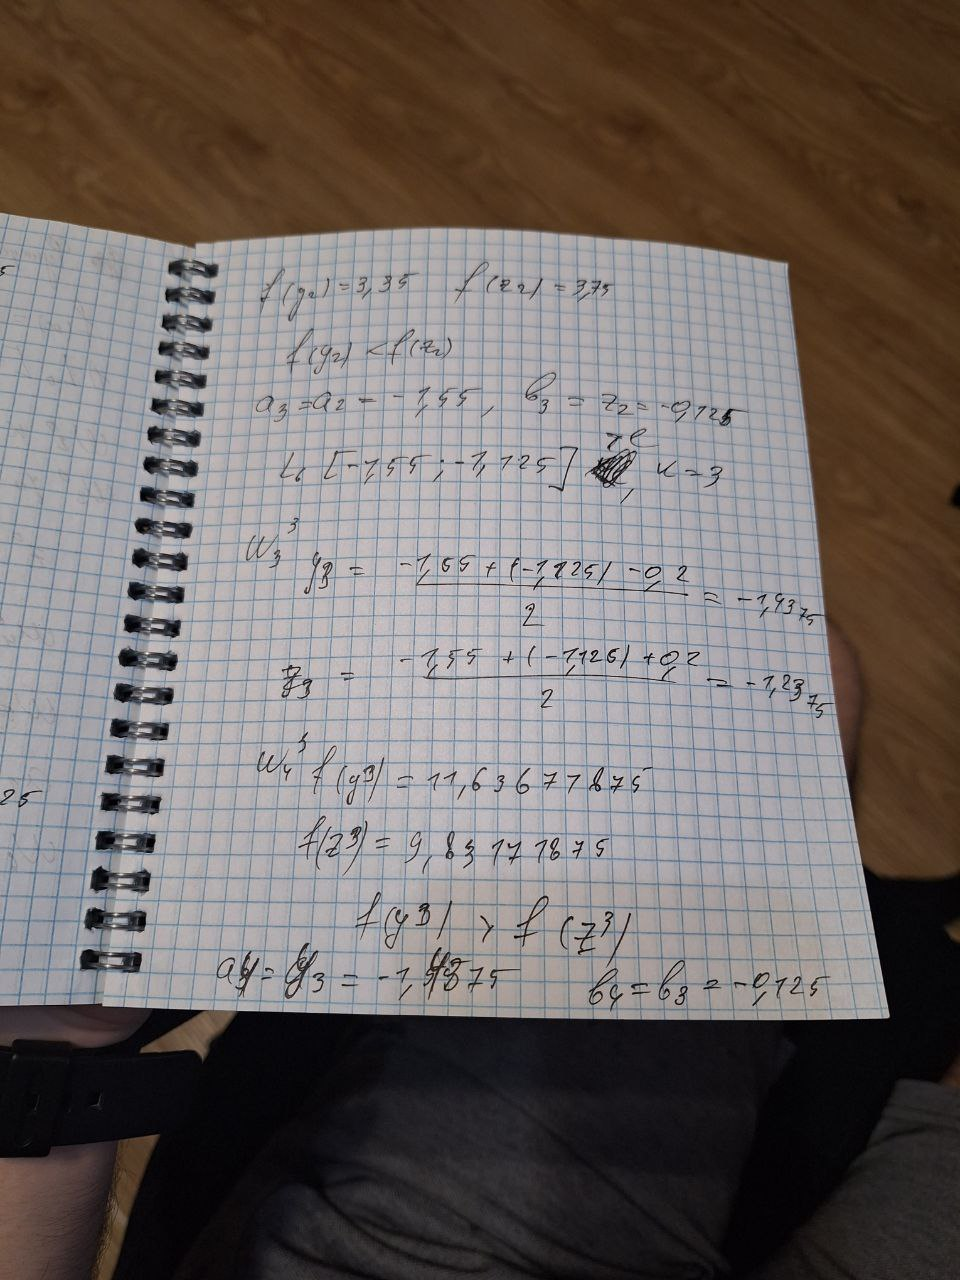 f(y₂) = 3,35 f(z₂) = 3,75
f(y₂) < f(z₂)
a₃ = a₂ = -1,55, b₃ = z₂ = -0,125
L₆ [-1,55 ; -1,125] , к = 3
5
Ш₃³ y₃ = (-1,55 + (-1,125) - 0,2)/2 = -1,4375
z₃ = (-1,55 + (-1,125) + 0,2)/2 = -1,2375
Ш₄³ f(y³) = 11,636771875
25
f(z³) = 9,83171875
f(y³) > f(z³)
a₄ = y₃ = -1,4375 b₄ = b₃ = -0,125